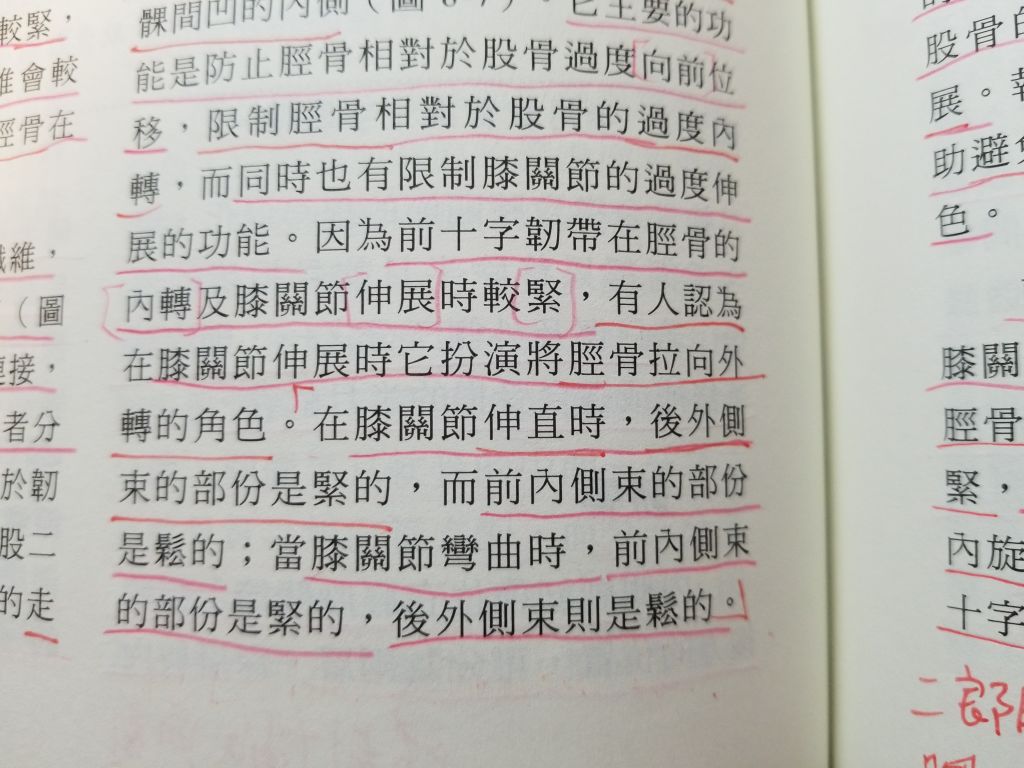 較緊，
維會較
脛骨在
纖維，
（圖
連接，
者分
於韌
股二
的走
髁間凹的內側（圖6-7）。它主要的功
能是防止脛骨相對於股骨過度向前位
移，限制脛骨相對於股骨的過度內
轉，而同時也有限制膝關節的過度伸
展的功能。因為前十字韌帶在脛骨的
內轉及膝關節伸展時較緊，有人認為
在膝關節伸展時它扮演將脛骨拉向外
轉的角色。在膝關節伸直時，後外側
束的部份是緊的，而前內側束的部份
是鬆的；當膝關節彎曲時，前內側束
的部份是緊的，後外側束則是鬆的。
股骨的
展。
助避免
色。
膝關
脛骨
緊，
內旋
十字
二郎